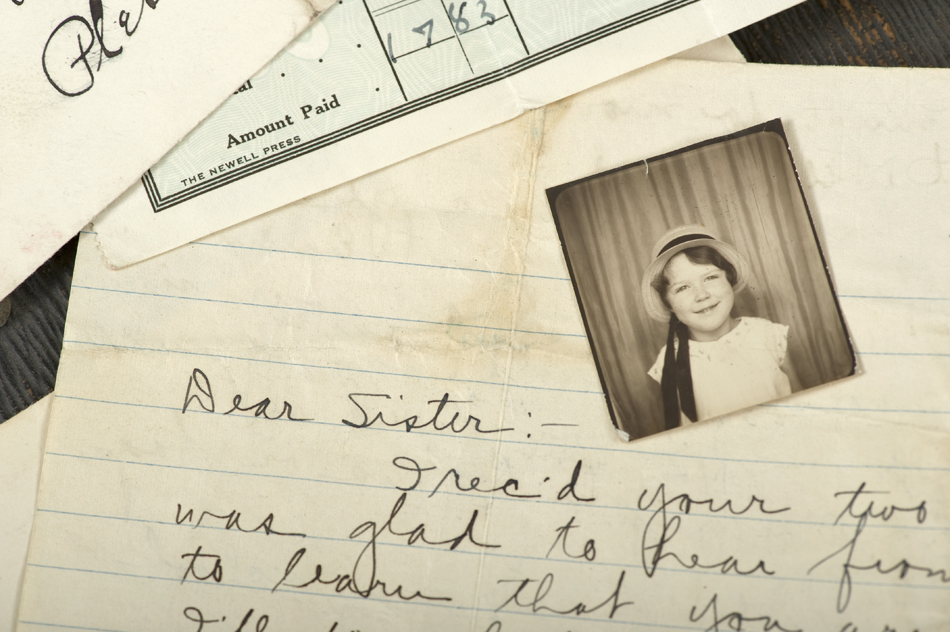 Ple
1783
Amount Paid
THE NEWELL PRESS
Dear Sister:—
I rec'd your two
was glad to hear from
to learn that you
I'll